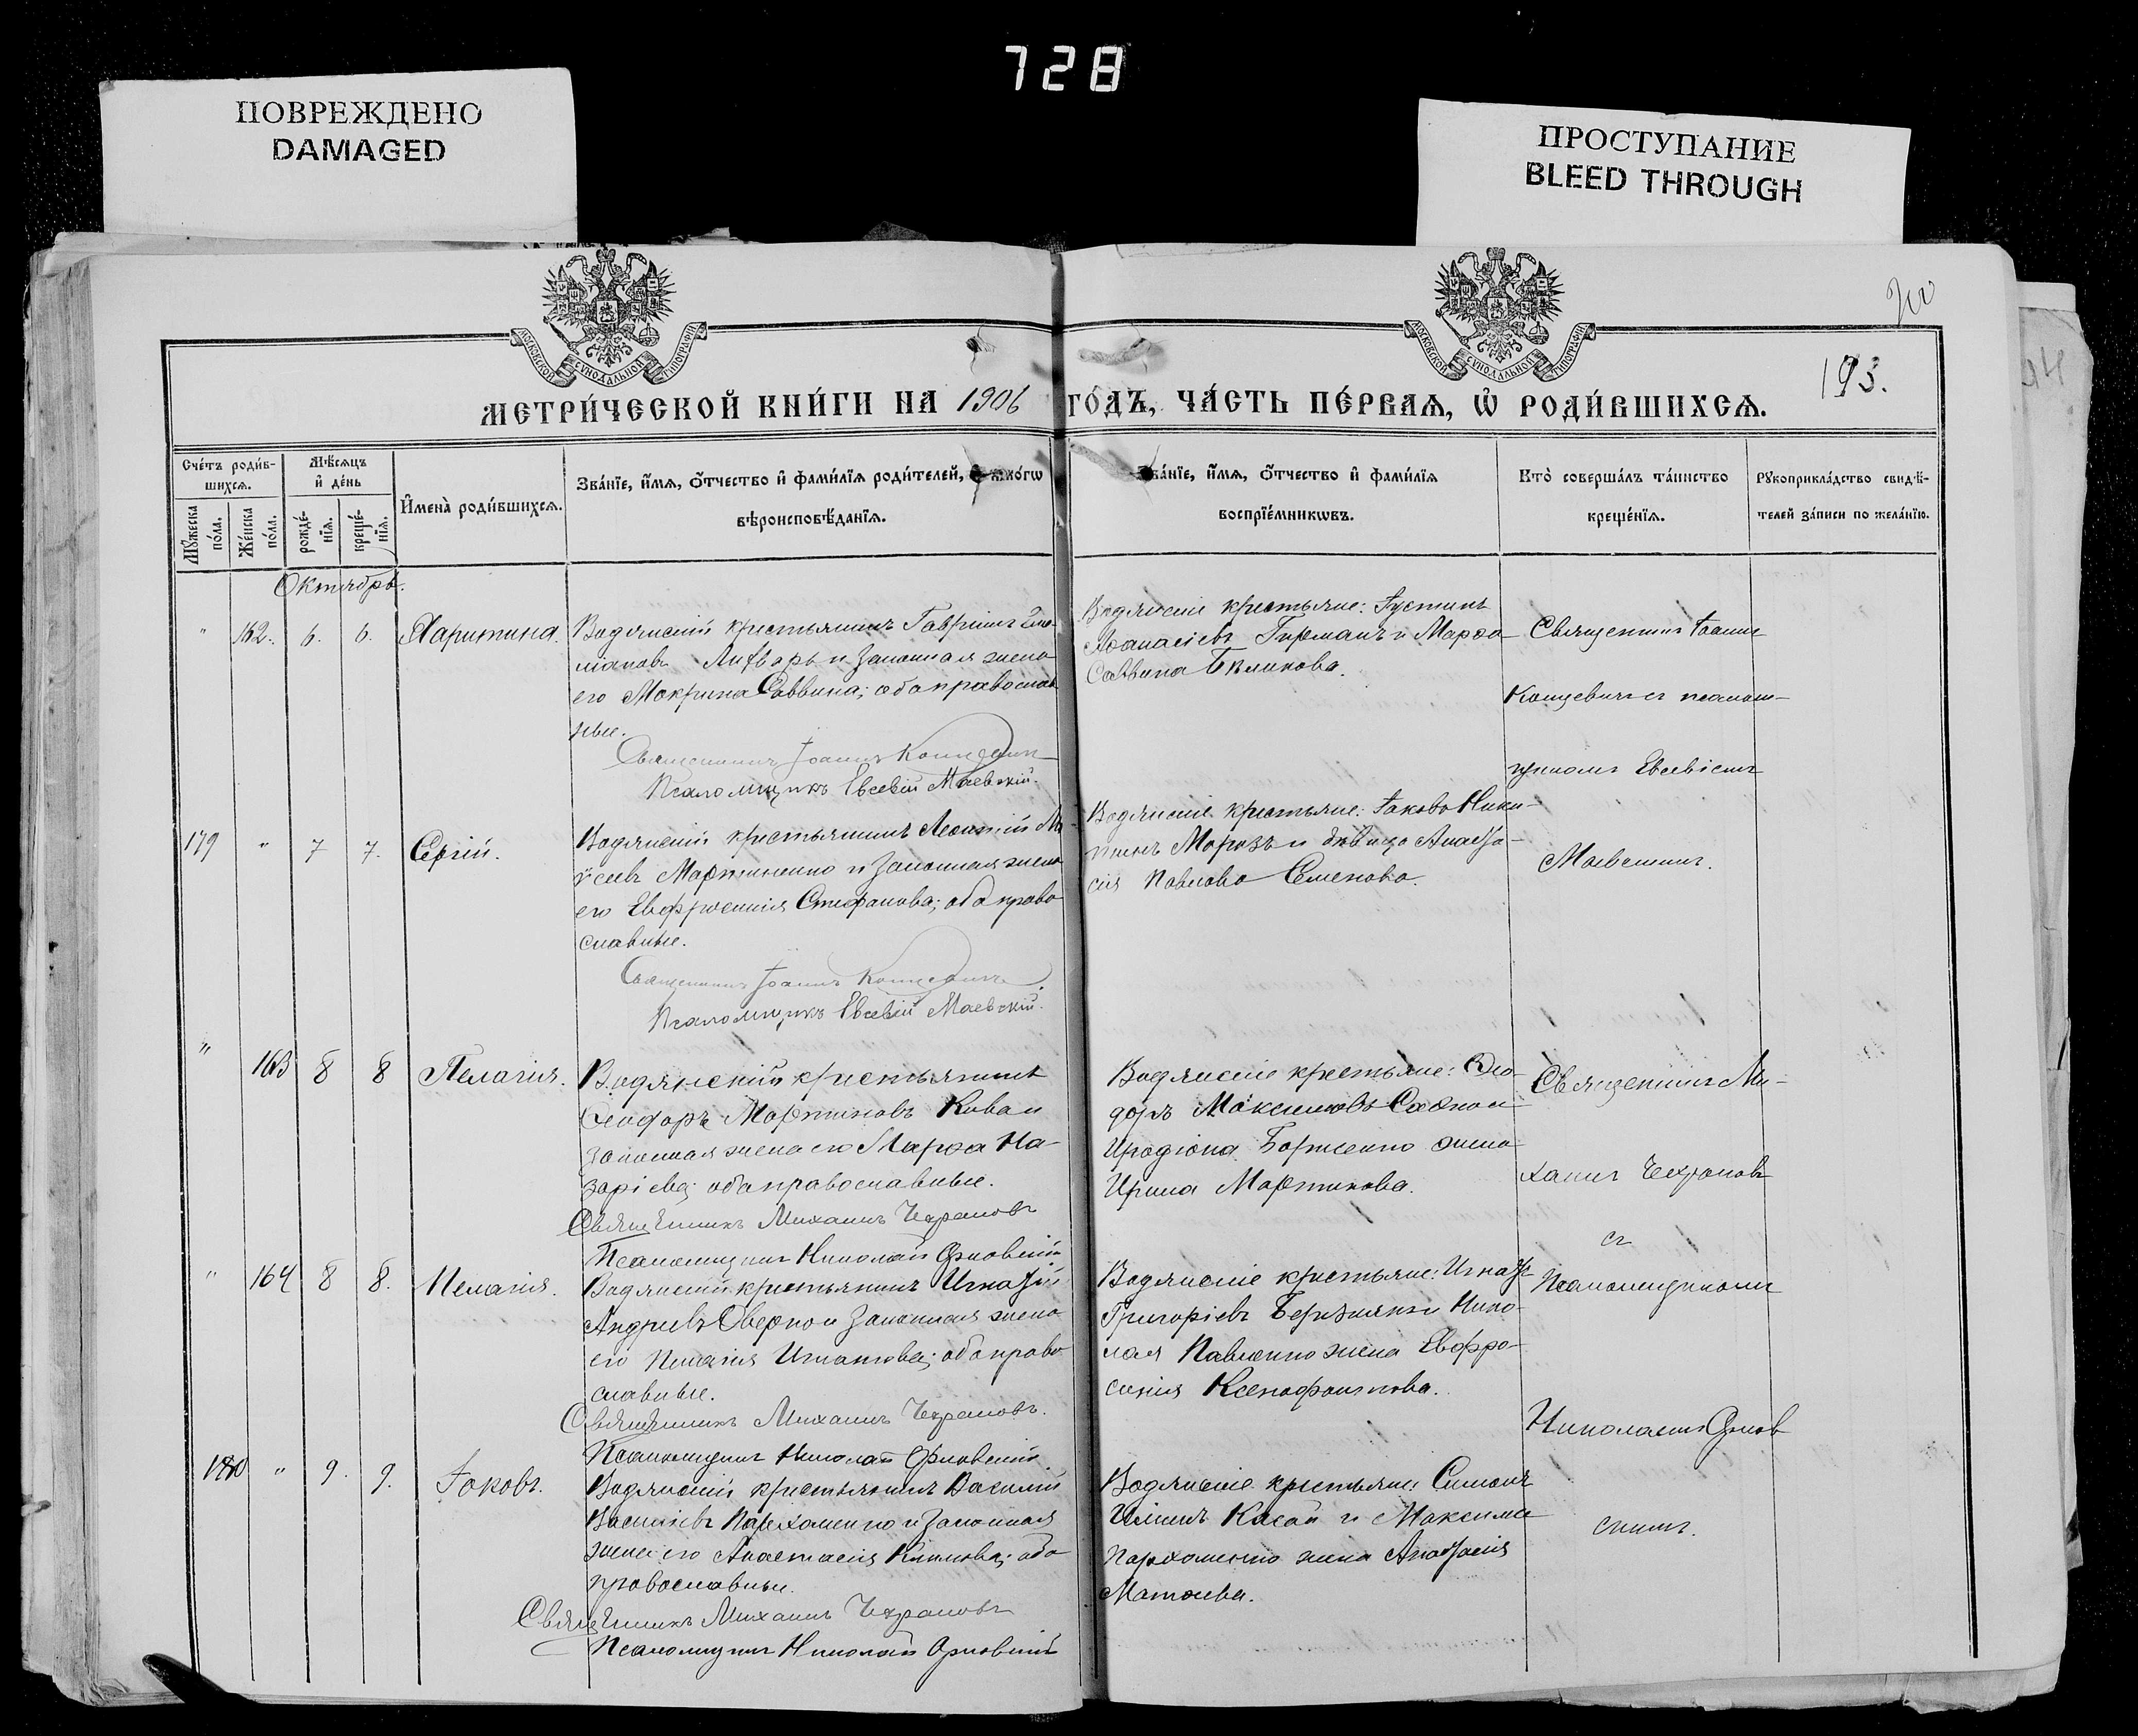 728
ПОВРЕЖДЕНО
DAMAGED
ПРОСТУПАНИЕ
BLEED THROUGH
МОСКОВСКОЙ СѴНОДАЛЬНОЙ ТИПОГРАФІИ
МОСКОВСКОЙ СѴНОДАЛЬНОЙ ТИПОГРАФІИ
193.
МЕТРИ́ЧЕСКОЙ КНИ́ГИ НА 1906 ГО́ДЪ, ЧА́СТЬ ПЕ́РВАѦ, Ѡ҆ РОДИ́ВШИХСѦ.
Сче́тъ роди́в-
шихсѧ.
Мꙋ́жеска по́ла.
Же́нска по́ла.
Мѣ́сѧцъ
и҆ де́нь
рожде́-
нїѧ.
креще́-
нїѧ.
И҆мена̀ роди́вшихсѧ.
Зва́нїе, и҆́мѧ, ѻ҆́тчество и҆ фами́лїѧ роди́телей,
вѣроисповѣ́данїѧ.
Зва́нїе, и҆́мѧ, ѻ҆́тчество и҆ фами́лїѧ
воспрїе́мникѡвъ.
Кто̀ соверша́лъ та́инство
креще́нїѧ.
Рꙋкоприкла́дство свидѣ́-
телей за́писи по жела́нїю.
Октябрь.
" 162. 6. 6. Харитина.
Водянскій крестьянинъ Гавріилъ
Лихваръ и законная жена
его Макрина Саввина; оба православ
ные.
Священникъ Іоаннъ Концевич
Псаломщикъ Евсевій Маевскій.
Водянскіе крестьяне: Іустинъ
Аѳанасіевъ и Марѳа
Саввина Бѣликова.
Священник Іоанн
Концевич с псалом-
щиком Евсевіем
Маевским.
179 " 7 7. Сергій.
Водянскій крестьянинъ Леонтій Мо
ѵсеевъ Мартиненко и законная жена
его Евфросинія Стефанова; оба право
славные.
Священникъ Іоаннъ Концевич
Псаломщикъ Евсевій Маевскій.
Водянскіе крестьяне: Іаковъ Ники-
тинъ Морозъ и дѣвица Анаста-
сія Павлова Семенова.
" 163 8 8 Пелагія.
Водянскій крестьянинъ
Ѳеодоръ Мартиновъ Кива и
законная жена его Марѳа На-
заріева; оба православные.
Священникъ Михаилъ Чехрановъ
Псаломщикъ Николай Орловскій
Водянскіе крестьяне: Ѳео-
доръ Максимовъ и
Иродіона жена
Ирина Мартинова.
Священник Ми-
хаил Чехранов
с
Псаломщиком
Николаем Орлов
ским.
" 164 8 8. Пелагія.
Водянскій крестьянинъ Игнатій
Андреевъ и законная жена
его Пелагія Игнатова; оба право
славные.
Священникъ Михаилъ Чехрановъ.
Псаломщикъ Николай Орловскій
Водянскіе крестьяне: Игнатъ
Григоріевъ и Нико-
лая Павленко жена Евфро-
синія Ксенофонтова.
180 " 9. 9. Іаковъ.
Водянскій крестьянинъ Василій
Василіевъ Пархоменко и законная
жена его Анастасія оба
православные.
Священникъ Михаилъ Чехрановъ
Псаломщикъ Николай Орловскій
Водянскіе крестьяне: Симонъ
и Максима
Пархоменко жена Анастасія
Матѳиева.